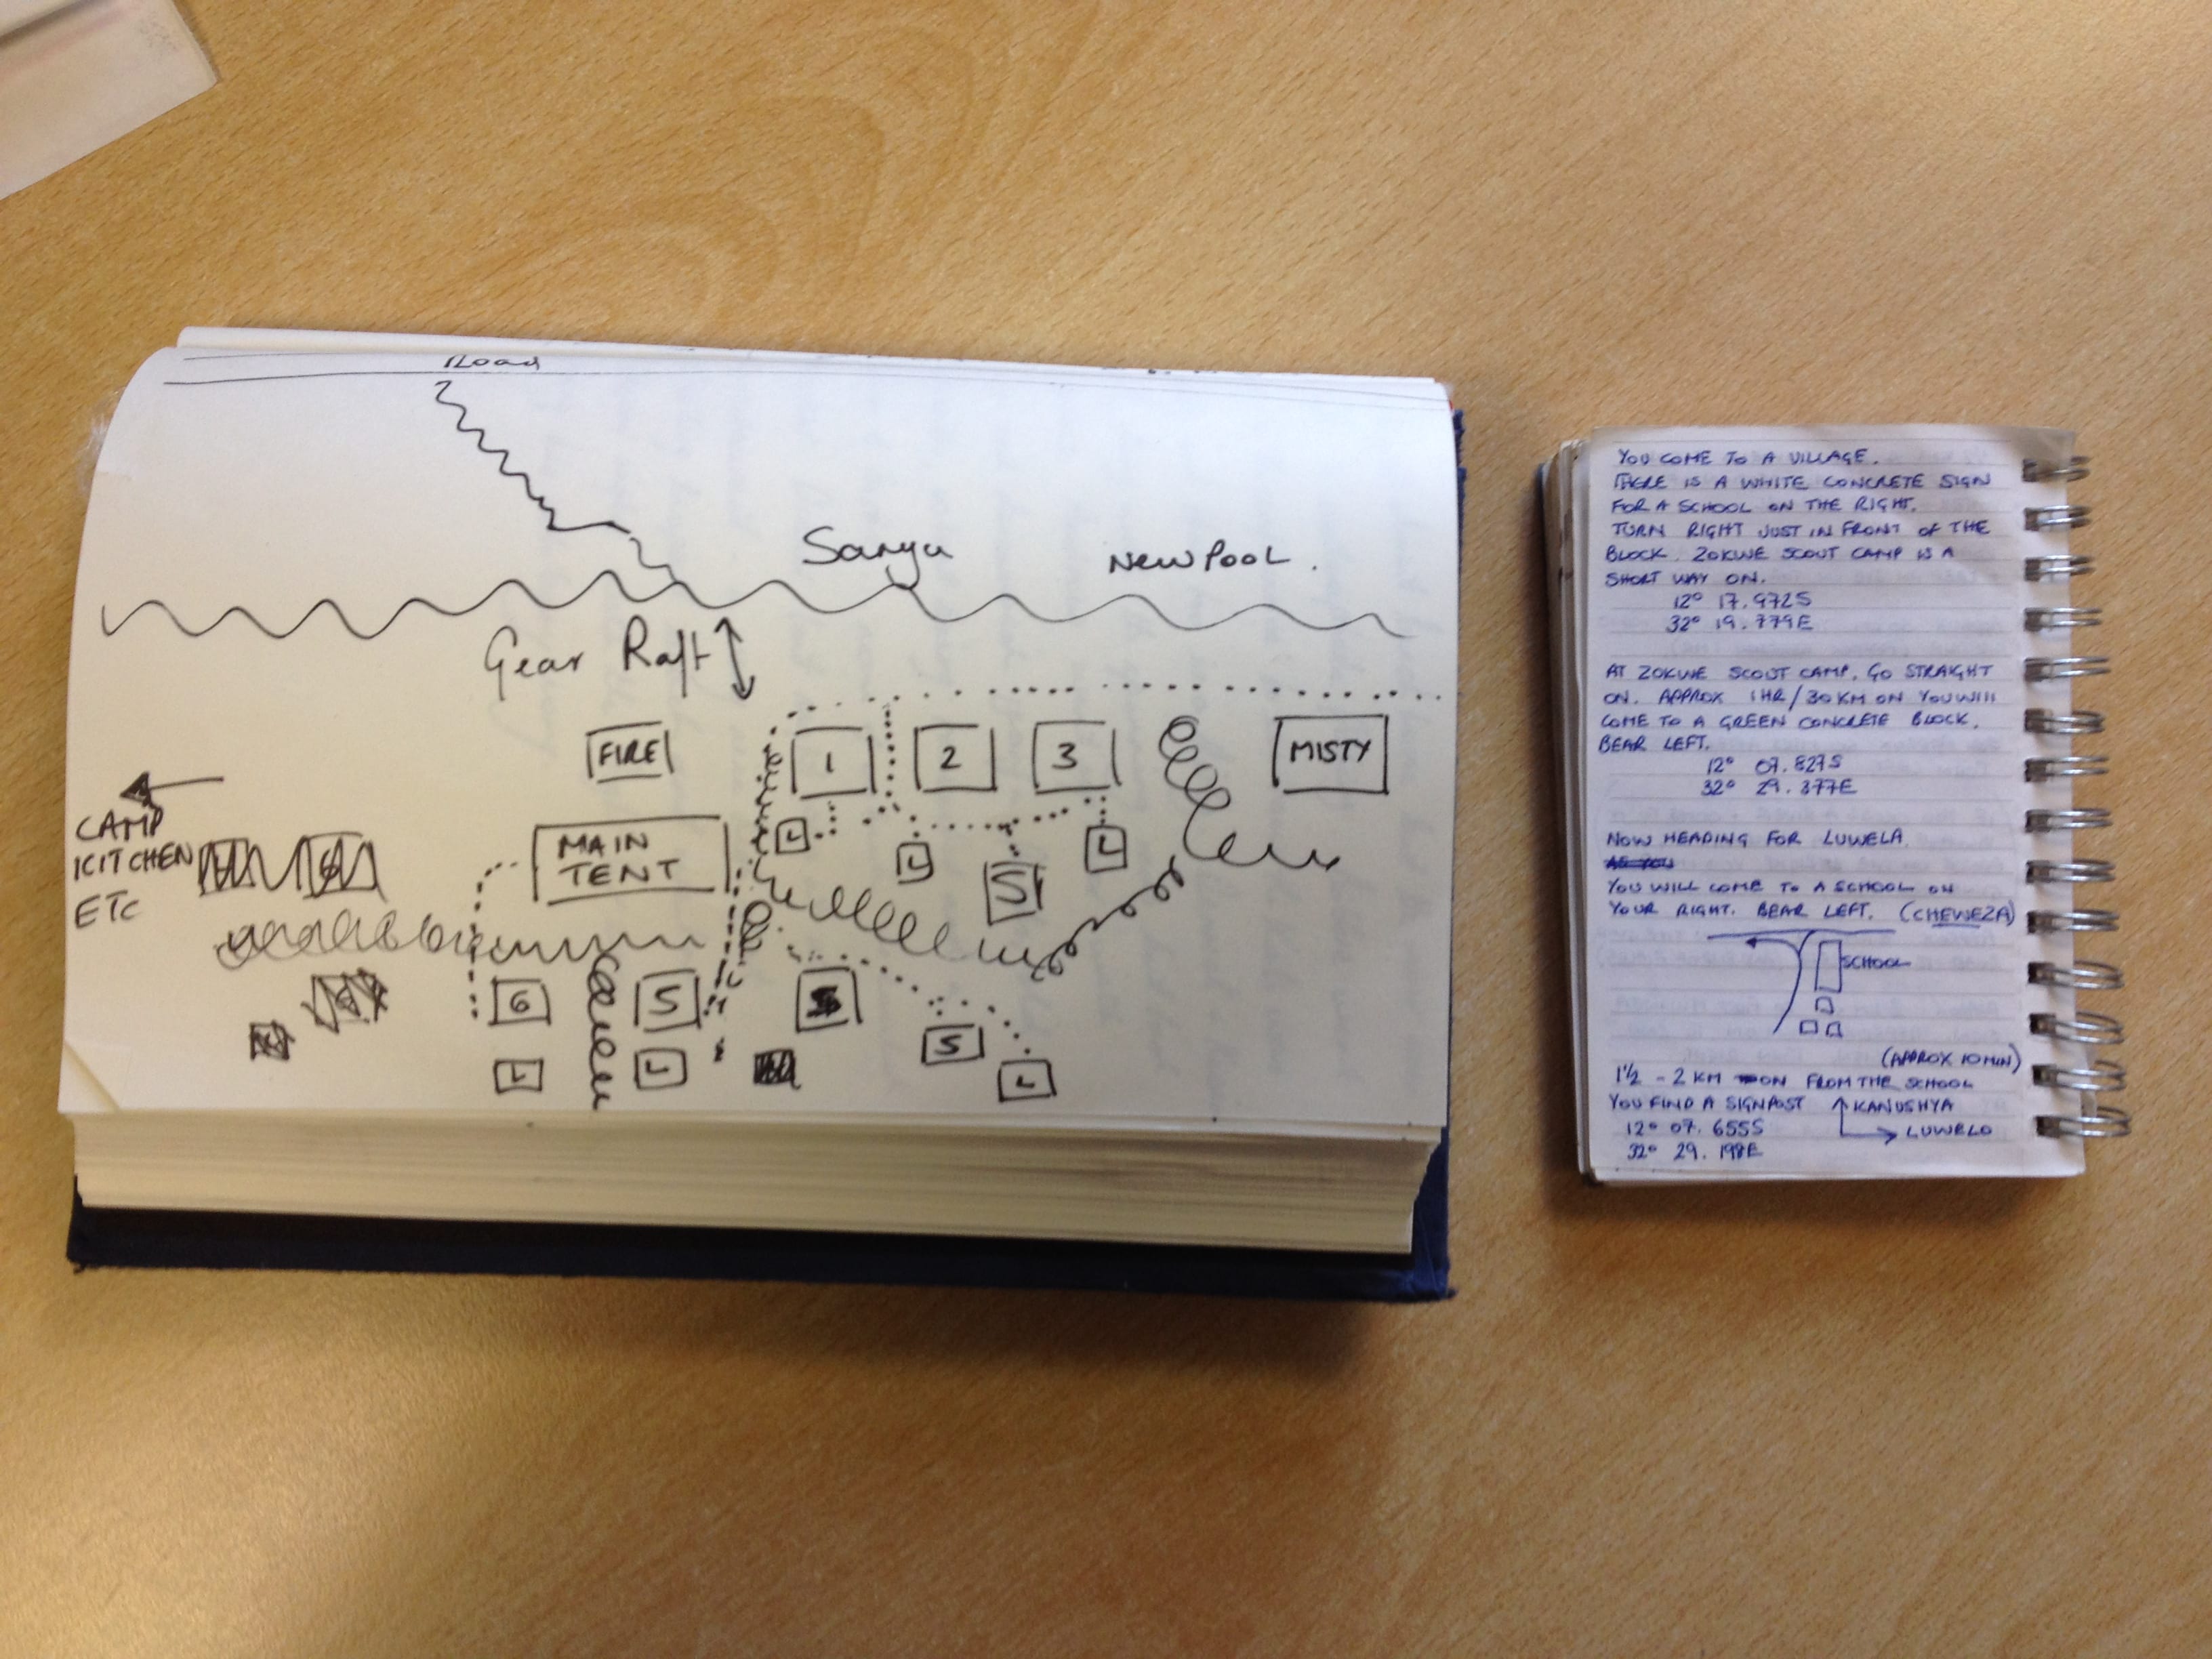 Road
Sanya
NEW POOL.
Gear Raft
FIRE
1
2
3
MISTY
CAMP
KITCHEN
ETC
MAIN
TENT
L
L
L
S
6
5
S
L
L
L
YOU COME TO A VILLAGE.
THERE IS A WHITE CONCRETE SIGN
FOR A SCHOOL ON THE RIGHT.
TURN RIGHT JUST IN FRONT OF THE
BLOCK. ZOKWE SCOUT CAMP IS A
SHORT WAY ON.
12° 17.972S
32° 19.779E
AT ZOKWE SCOUT CAMP, GO STRAIGHT
ON. APPROX 1HR/30KM ON YOU WILL
COME TO A GREEN CONCRETE BLOCK.
BEAR LEFT.
12° 07.827S
32° 29.377E
NOW HEADING FOR LUWELA.
YOU WILL COME TO A SCHOOL ON
YOUR RIGHT. BEAR LEFT. (CHEWEZA)
SCHOOL
(APPROX 10 MIN)
1½ - 2 KM ON FROM THE SCHOOL
YOU FIND A SIGNPOST
KANUSHYA
LUWELO
12° 07.655S
32° 29.198E